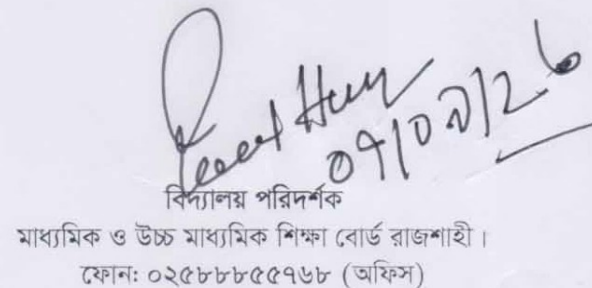 ০৭/০৯/২৬
বিদ্যালয় পরিদর্শক
মাধ্যমিক ও উচ্চ মাধ্যমিক শিক্ষা বোর্ড রাজশাহী।
ফোন: ০২৫৮৮৮৫৫৭৬৮ (অফিস)